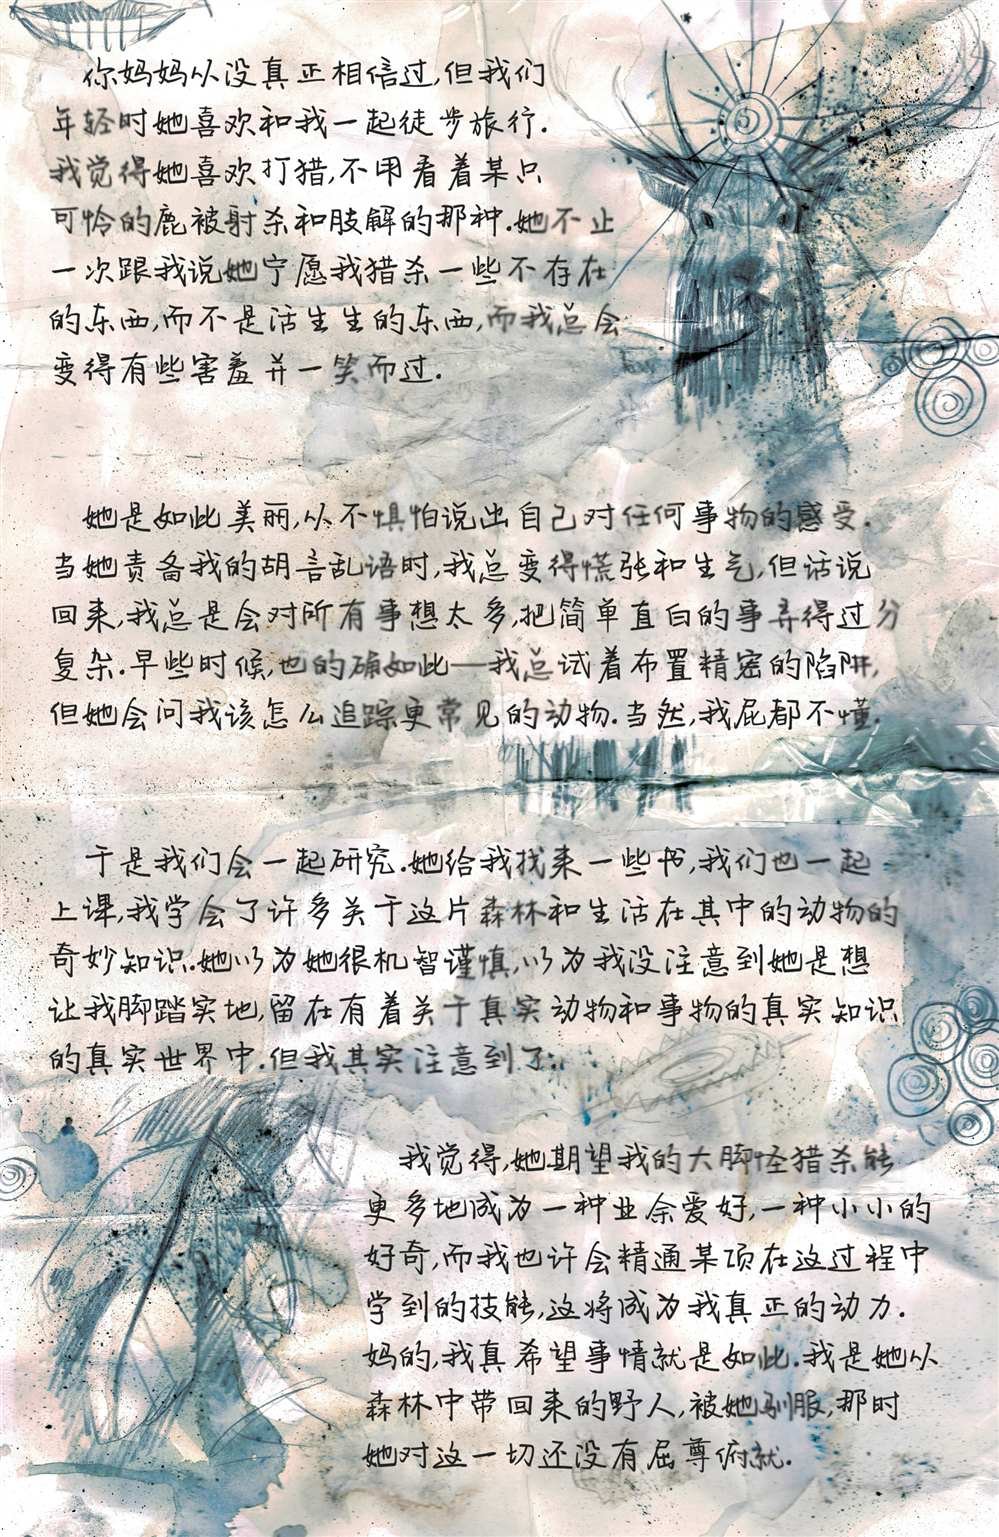 你妈妈从没真正相信过,但我们
年轻时她喜欢和我一起徒步旅行.
我觉得她喜欢打猎,不用看着某只
可怜的鹿被射杀和肢解的那种.她不止
一次跟我说她宁愿我猎杀一些不存在
的东西,而不是活生生的东西,而我总会
变得有些害羞并一笑而过.
她是如此美丽,从不惧怕说出自己对任何事物的感受.
当她责备我的胡言乱语时,我总变得慌张和生气,但话说
回来,我总是会对所有事想太多,把简单直白的事弄得过分
复杂.早些时候,也的确如此——我总试着布置精密的陷阱,
但她会问我该怎么追踪更常见的动物.当然,我屁都不懂.
于是我们会一起研究.她给我找来一些书,我们也一起
上课,我学会了许多关于这片森林和生活在其中的动物的
奇妙知识.她以为她很机智谨慎,以为我没注意到她是想
让我脚踏实地,留在有着关于真实动物和事物的真实知识
的真实世界中.但我其实注意到了.
我觉得,她期望我的大脚怪猎杀能
更多地成为一种业余爱好,一种小小的
好奇,而我也许会精通某项在这过程中
学到的技能,这将成为我真正的动力.
妈的,我真希望事情就是如此.我是她从
森林中带回来的野人,被她驯服,那时
她对这一切还没有屈尊俯就.